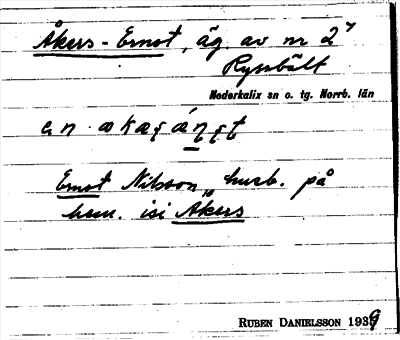 Åkers-Ernst, äg. av nr 2⁷
Ryssbält
Nederkalix sn o. tg. Norrb. län
Ernst Nilsson, husb. på
hem. isi Åkers
RUBEN DANIELSSON 1939